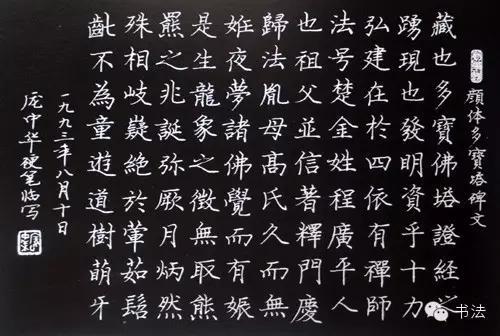 顔体多寶塔碑文
藏也多寶佛塔證經之
踴現也發明資乎十力
弘建在於四依有禪師
法号楚金姓程廣平人
也祖父並信著釋門慶
歸法胤母髙氏久而無
姙夜夢諸佛覺而有娠
是生龍象之徵無取熊
羆之兆誕弥厥月炳然
殊相岐嶷絕於葷茹髫
齔不為童遊道樹萌牙
一九九三年八月十日
庞中华硬笔临写
书法